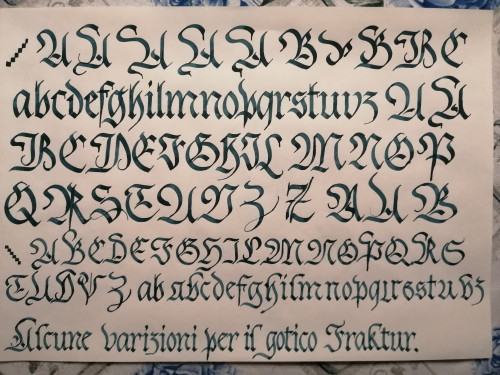 A A A A A B B B B C
abcdefghilmnopqrstuvz A A
B C D E F G H I L M N O P
Q R S T U V Z Z A A B
A B C D E F G H I L M N O P Q R S
T U D V Z ab abcdefghilmnopqrsstuvz
Alcune varizioni per il gotico Fraktur.